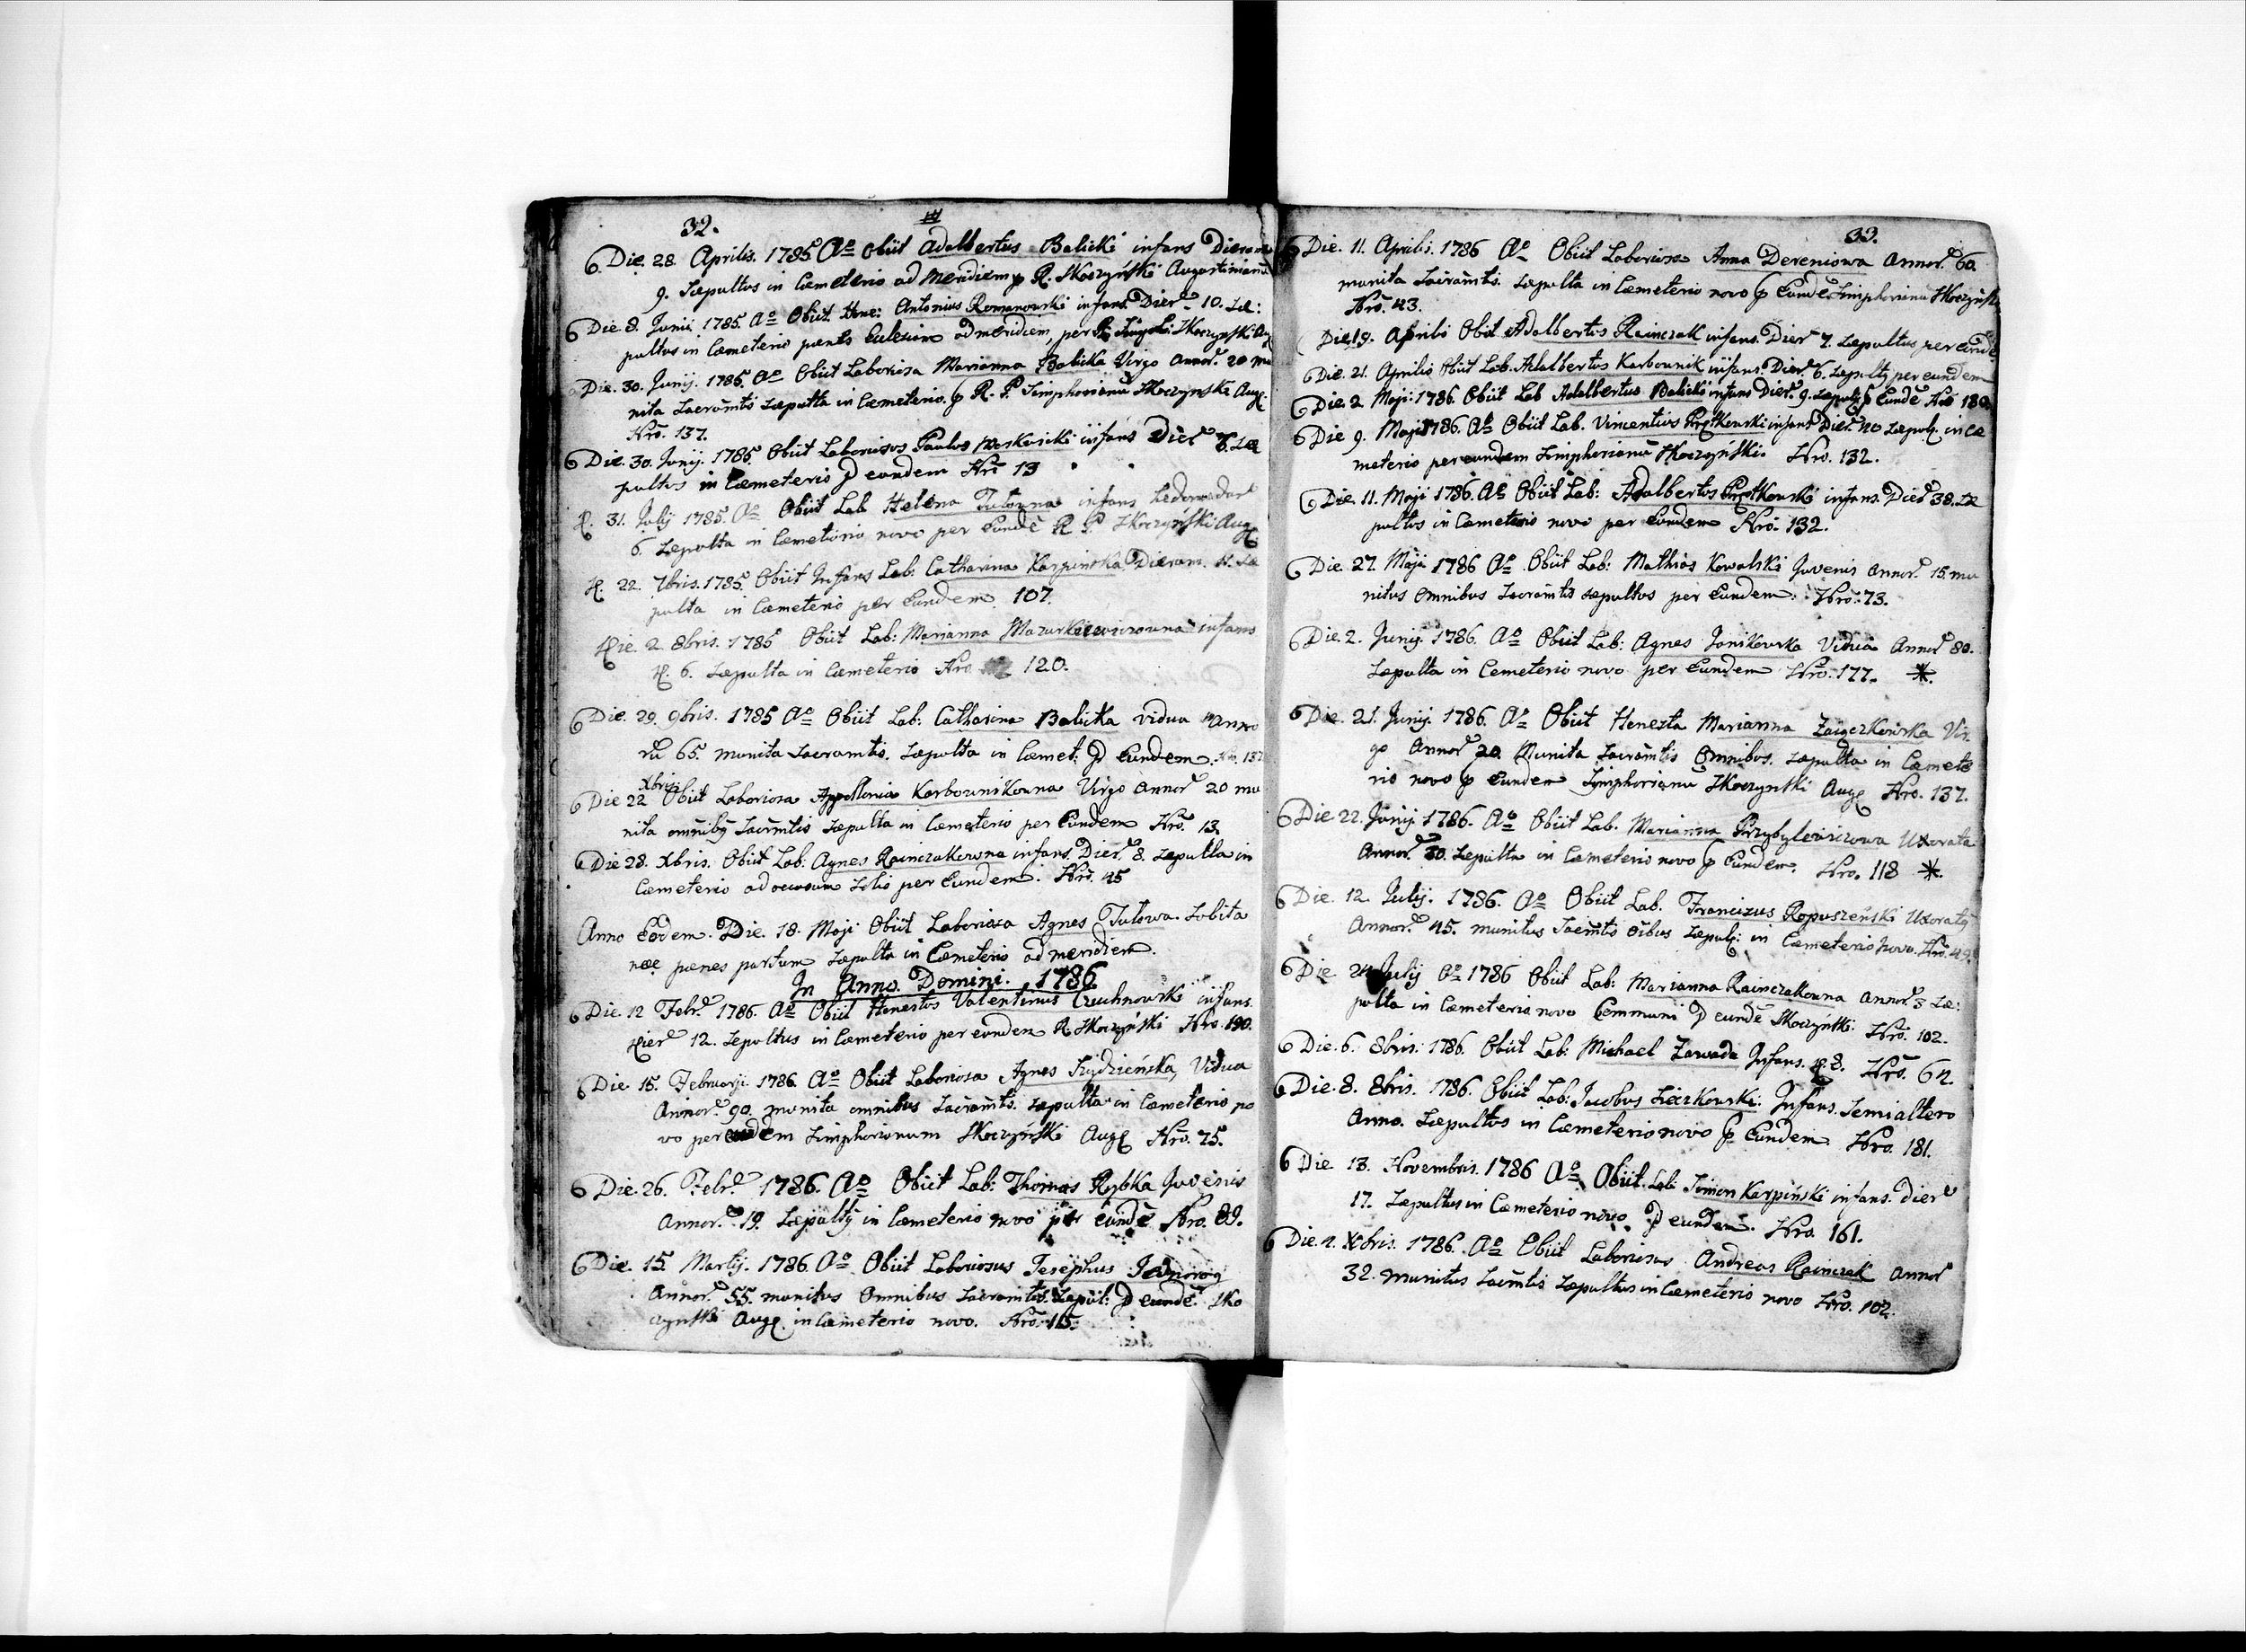 32.
Die. 28. Aprilis. 1785 Ao obiit Adalbertus Balicki infans Dierum
9. Sæpultus in Cæmeterio ad Meridiem p R. Skoczyński Augustinianũ
Die 8. Junii 1785. Ao Obiit Hone: Antonius Romanowski infans. Dier. 10. Sæ:
pultus in Cæmeterio penes Eulesiam ad meridiem, per R. Skoczyński Aug
Die. 30. Junij. 1785. Ao Obiit Laboriosa Marianna Balicka Virgo Annor. 20 mu
nita Sacramtis Sæpulta in Cæmeterio. p R. P. Simphorianũ Skoczynski Aug:
Nrõ. 137.
Die. 30. Junij. 1785. Obiit Laboriosus Paulus infans Dier 8. Sæ
pultus in Cæmeterio p eundem Nrõ 13
D. 31. Julij 1785. Ao Obiit Lab Helena Tutowna infans
6. Sæpulta in Cæmeterio novo per Eundẽ R. P. Skoczyński Aug
D. 22. 7bris. 1785 Obiit Infans Lab: Catharina Karpinska Dierum. Sæ
pulta in Cæmeterio per Eundem 107.
Die. 2. 8bris. 1785 Obiit Lab: Marianna Mazurkiewiczowna infans
D. 6. Sæpulta in Cæmeterio Nro 120.
Die. 29. 9bris. 1785 Ao Obiit Lab: Catharina Balicka vidua Anno
rũ 65. munita Sacramtis. Sæpulta in Cæmet: p Eundem. Nro. 137
Xbris
Die 22 Obiit Laboriosa Appollonia Karbownikowna Virgo Annor 20 mu
nita omñibg Sacrm̃tis Sæpulta in Cæmeterio per Eundem Nrõ. 13.
Die 28. Xbris. Obiit Lab: Agnes Rainczakowna infans. Dier. 8. Sæpulta in
Cæmeterio ad occasum Solis per Eundem. Nrõ. 45
Anno Eodem. Die. 18. Maji Obiit Laboriosa Agnes Tutowa. Subita
nee penes partum Sæpulta in Cæmeterio ad meridiem.
In Anno. Domini. 1786
Die. 12 Febr. 1786. Ao Obiit Honestus Valentinus Czuchnowski infans.
Dier 12. Sepultus in Cæmeterio per eundem R. Skoczyński Nro. 190.
Die 15. Februarji. 1786. Ao Obiit Laboriosa Agnes Frydzieńska, Vidua
Annor. 90. munita omnibus Sacram̃ts. Sæpulta in Cæmeterio no
vo per eundem Simphorionum Skoczyński Aug Nrõ. 75.
Die. 26. Febr. 1786. Ao Obiit Lab: Thomas Rybka Juvenis
Annor. 19. Sæpultg in Cæmeterio novo per eundẽ Nro. 89.
Die. 15. Martij. 1786. Ao Obiit Laboriosus Josephus Jednorog
Annor. 55. munitus Omnibus Sacramtis. Sæpul: p eundẽ. Sko
czynski Aug. in Cæmeterio novo. Nrõ. 115.
33.
Die. 11. Aprilis. 1786 Ao Obiit Laboriosa Anna Dereniowa Annor. 60.
munita Sacram̃tis. Sæpulta in Cæmeterio novo p Eundẽ Simphorianũ Skoczyńsk
Nrõ. 43.
Die. 19. Aprilis Obiit Adalbertus Rainczak infans. Dier 7. Sæpultus per eundẽ
Die. 21. Aprilis Obiit Lab. Adalbertus Karbownik infans. Dier. 6. Sæpultg per eundem
Die. 2. Maji: 1786. Obiit Lab Adalbertus Balicki infans Dier. 9. Sæpultg p Eundẽ Nro 180.
Die 9. Maji 1786. Ao Obiit Lab. Vincentius Pyǫtkowski infans Dier. 20 Sæpultg. in Cæ
meterio per eundem Simphorianũ Skoczyński. Nro. 132.
Die. 11. Maji 1786. Ao Obiit Lab: Adalbertus Pyǫtkowski infans. Dier 38. Sæ
pultus in Cæmeterio novo per Eundem Nrõ. 132.
Die. 27. Maji. 1786 Ao Obiit Lab: Mathias Kowalski Juvenis Annor. 15. mu
nitus Omnibus Sacram̃tis sæpultus per Eundem. Nrõ. 73.
Die. 2. Junij. 1786. Ao Obiit Lab: Agnes Janikowska Vidua Annor 80.
Sæpulta in Cemeterio novo per Eundem Nrõ. 177. *.
Die. 21. Junij. 1786. Ao Obiit Honesta Marianna Zaięczkowska Vir-
go Annor 20. Munita Sacram̃tis Omnibus. Sæpulta in Cæmete
rio novo p Eundem Simphorianũ Skoczynski Aug Nro. 137.
Die. 22. Junij 1786. Ao Obiit Lab. Marianna Przybylewiczowa Uxorata
Annor. 30. Sepulta in Cæmeterio novo p Eundem. Nro. 118 *.
Die. 12. Julij. 1786. Ao Obiit Lab. Franciszus Ropuszeński Uxoratg
Annor. 45. munitus Sacm̃tis oĩbus Sæpulg: in Cæmeterio novo. Nrõ. 49.
Die 24 Julij Ao 1786 Obiit Lab: Marianna Rainczakowna Annor. 3 Sæ:
pulta in Cæmeterio novo Communi p eundẽ Skoczyński. Nro. 102.
Die. 6. 8bris. 1786. Obiit Lab: Michael Zawada Infans. D. 8. Nrõ. 62.
Die. 8. 8bris. 1786. Obiit Lab: Jacobus Lieczkowski. Infans. Semialtero
Anno. Sæpultus in Cæmeterio novo p Eundem Nro. 181.
Die 13. Novembris. 1786 Ao Obiit Lab Simon Karpiński infans. Dier
17. Sæpultus in Cæmeterio novo. p eundem. Nro. 161.
Die. 2. Xbris. 1786. Ao Obiit Laboriosus Andreas Rainczak Annor
32. munitus Sacm̃tis Sæpultus in Cæmeterio novo Nro. 102.